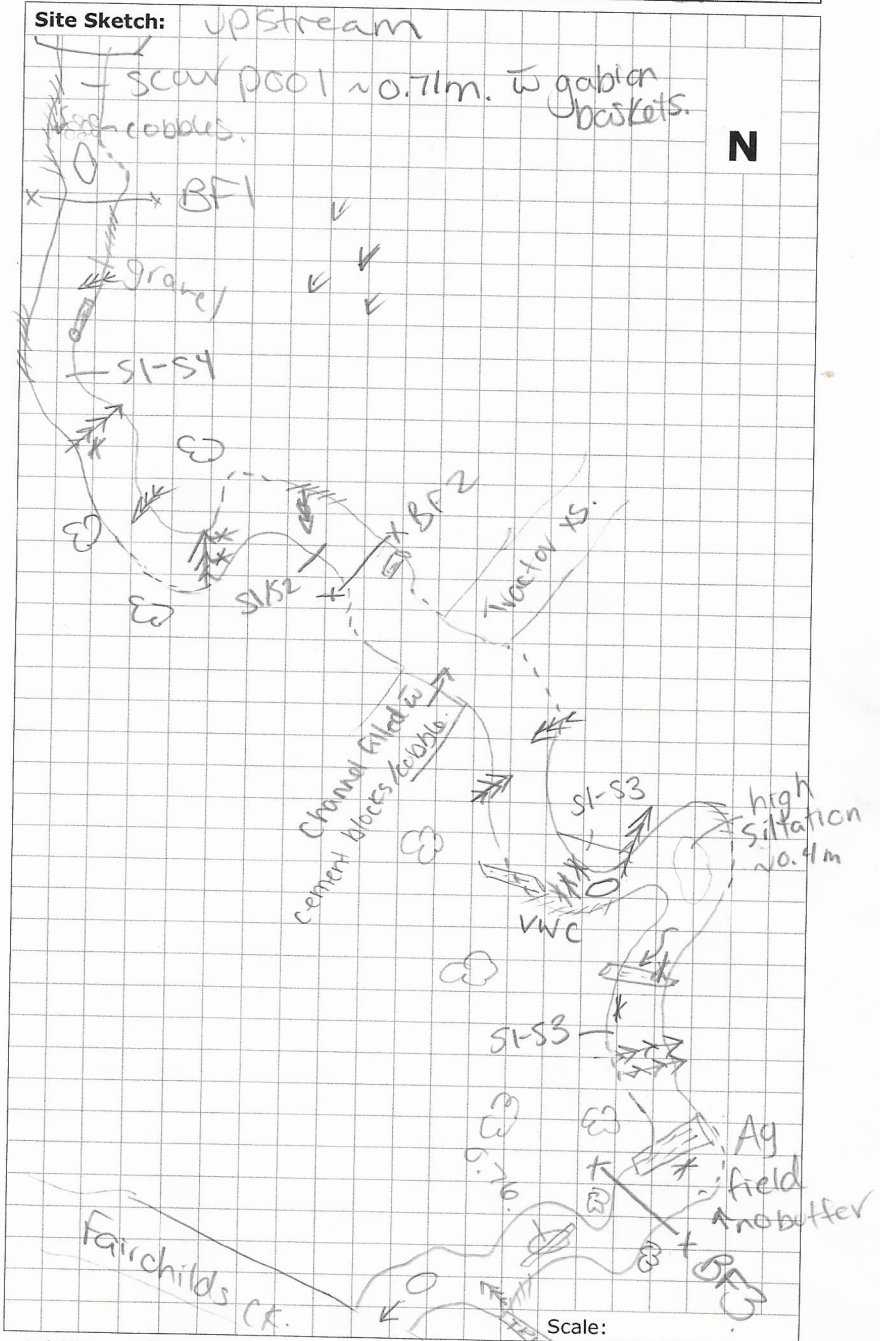 Site Sketch:
upstream
scour pool ~0.71m. w̄ gabion
baskets.
cobbles.
N
BF1
gravel
S1-S4
BF2
S1/S2
Tractor xs.
Channel filled w̄
cement blocks/cobble.
S1-S3
high
siltation
~0.4m
VWC
S1-S3
Ag
field
no buffer
BF3
Fairchilds
CK.
Scale: